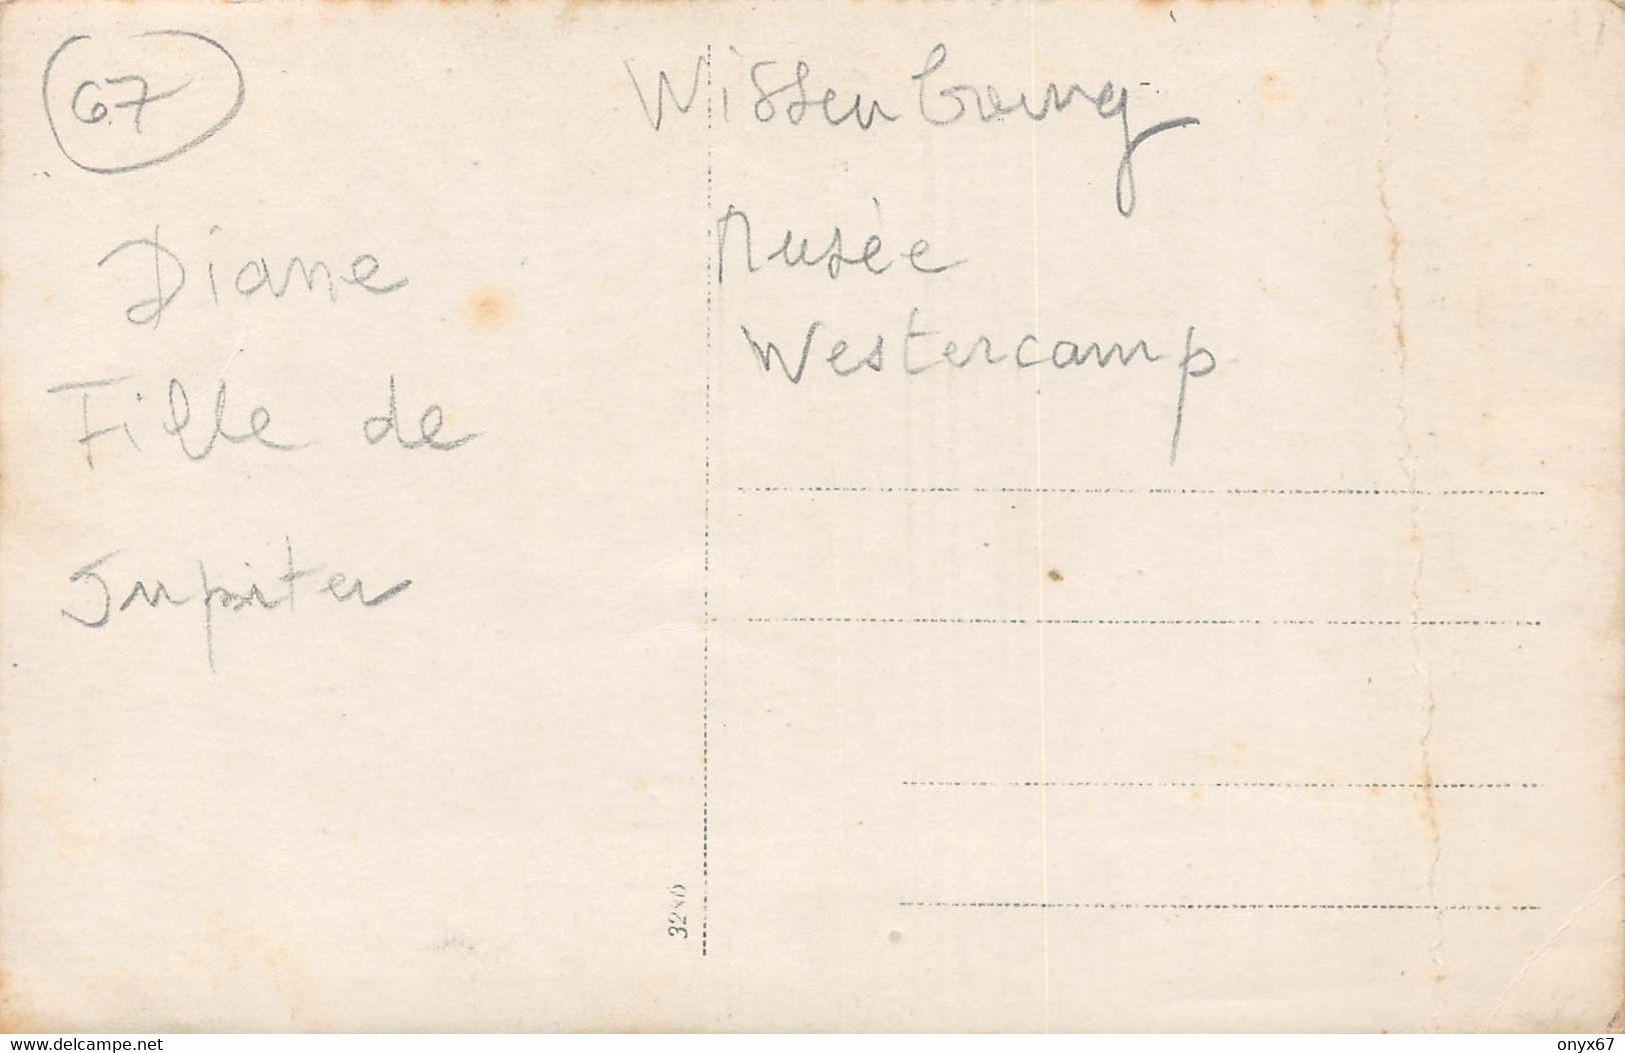 67
Diane
Fille de
Jupiter
Wissenbourg
Musée
Westercamp
www.delcampe.net
onyx67